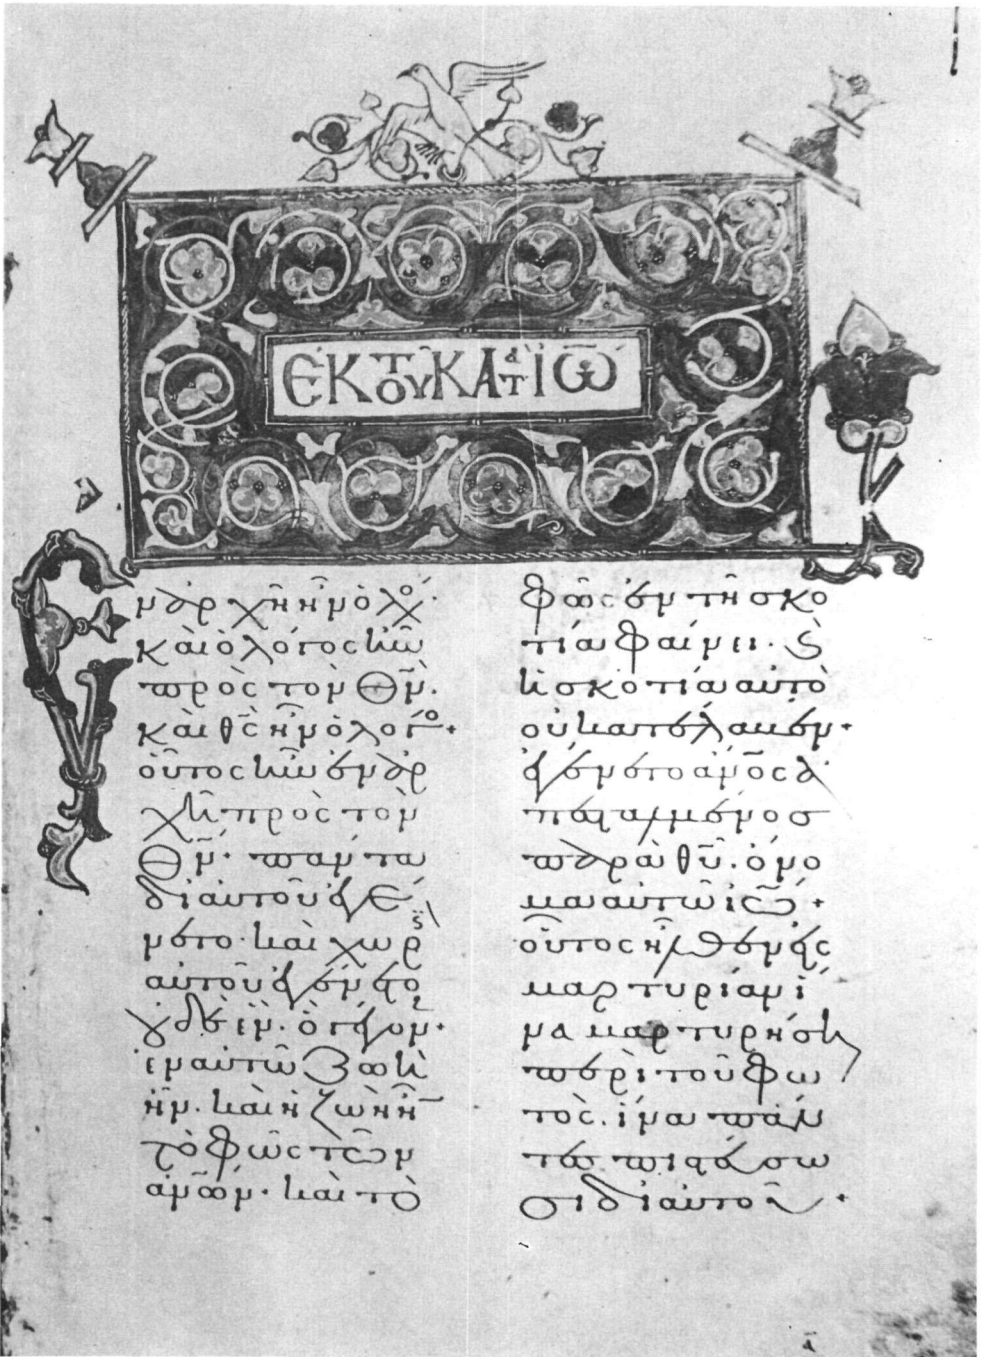 ἘΚ ΤΟΥ ΚΑΤΑ ἸΩ
ν ἀρχῆ ἦν ὁ λόγο·
καὶ ὁ λόγος ἦν
πρὸς τὸν θν̅·
καὶ θς̅ ἦν ὁ λόγο·
οὗτος ἦν ἐν ἀρ
χῆ πρὸς τὸν
θν̅· πάντα
δι αὐτοῦ ἐγέ
νετο· καὶ χωρὶς
αὐτοῦ ἐγένετο
οὐδὲ ἕν· ὃ γέγονεν·
ἐν αὐτῶ ζωὴ
ἦν· καὶ ἡ ζωὴ ἦν
τὸ φῶς τῶν
ἀνων̅· καὶ τὸ
φῶς ἐν τῆ σκο
τία φαίνει· καὶ
ἡ σκοτία αὐτὸ
οὐ κατέλαβεν·
ἐγένετο ἀνος̅ ἀ
πεσταλμένος
παρὰ θυ̅· ὄνο
μα αὐτῶ ἰω̅·
οὗτος ἦλθεν εἰς
μαρτυρίαν ἵ
να μαρτυρήση
περὶ τοῦ φω
τὸς· ἵνα πάν
τες πιστεύσω
σι δι αὐτοῦ·
α̅